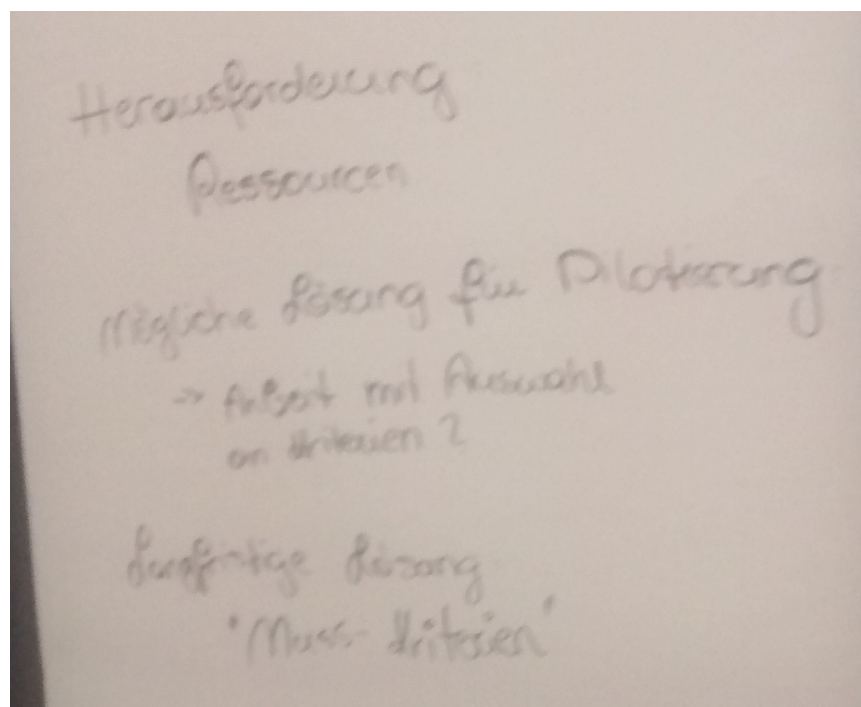 Herausforderung
Ressourcen
Mögliche Lösung für Pilotierung
-> Arbeit mit Auswahl
an Kriterien?
Langfristige Lösung
"Muss-Kriterien"